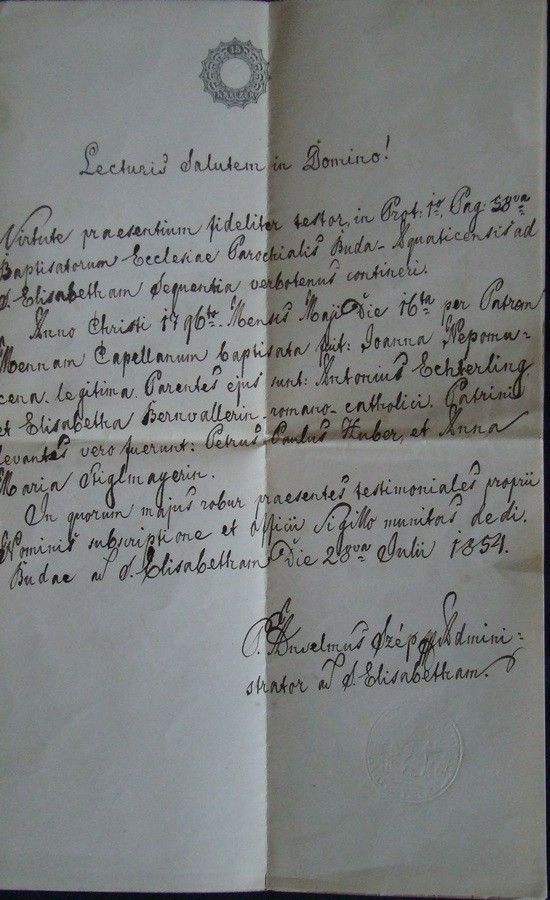 15
KREUZER
Lecturis Salutem in Domino!
Virtute praesentium fideliter testor, in Prot: 1o, Pag: 58va
Baptisatorum Ecclesiae Parochialis Buda-Aquaticensis ad
S. Elisabetham Sequentia verbotenus contineri.
Anno Christi 1796to Mensis Maji Die 16ta per Patrem
Mennam Capellanum baptisata fuit: Joanna Nepomu-
cena. legitima. Parentes ejus sunt: Antonius Echterling
et Elisabetha Bernvallerin romano-catholici. Patrini
levantes vero fuerunt: Petrus Paulus Huber, et Anna
Maria Siglmayerin.
In quorum majus robur praesentes testimoniales proprii
Nominis subscriptione et officii Sigillo munitas dedi.
Budae ad S. Elisabetham Die 28va Julii 1854.
P. Anselmus Szép Admini-
strator ad S. Elisabetham.